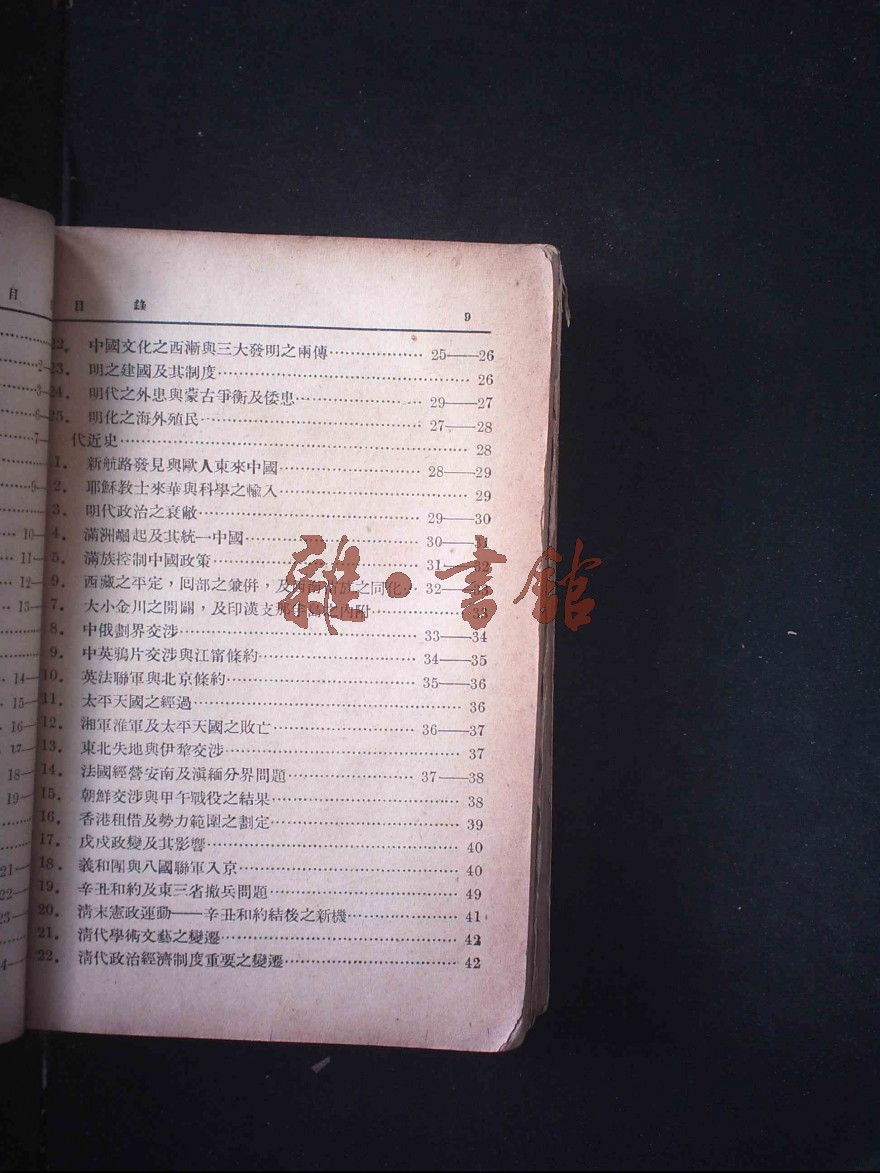 目
目 錄 9
22. 中國文化之西漸與三大發明之兩傳 25——26
23. 明之建國及其制度 26
24. 明代之外患與蒙古爭衡及倭忠 29——27
25. 明化之海外殖民 27——28
代近史 28
1. 新航路發見與歐人東來中國 28——29
2. 耶穌教士來華與科學之輸入 29
3. 明代政治之衰敝 29——30
4. 滿洲崛起及其統一中國 30——31
5. 滿族控制中國政策 31——32
9. 西藏之平定，回部之兼併，及西南諸族之同化 32——33
7. 大小金川之開闢，及印漢支那半島之內附 33
8. 中俄劃界交涉 33——34
9. 中英鴉片交涉與江甯條約 34——35
10. 英法聯軍與北京條約 35——36
11. 太平天國之經過 36
12. 湘軍淮軍及太平天國之敗亡 36——37
13. 東北失地與伊犂交涉 37
14. 法國經營安南及滇緬分界問題 37——38
15. 朝鮮交涉與甲午戰役之結果 38
16. 香港租借及勢力範圍之劃定 39
17. 戊戌政變及其影響 40
18. 義和團與八國聯軍入京 40
19. 辛丑和約及東三省撤兵問題 49
20. 淸末憲政運動——辛丑和約結後之新機 41
21. 淸代學術文藝之變遷 42
22. 淸代政治經濟制度重要之變遷 42
雜·書館